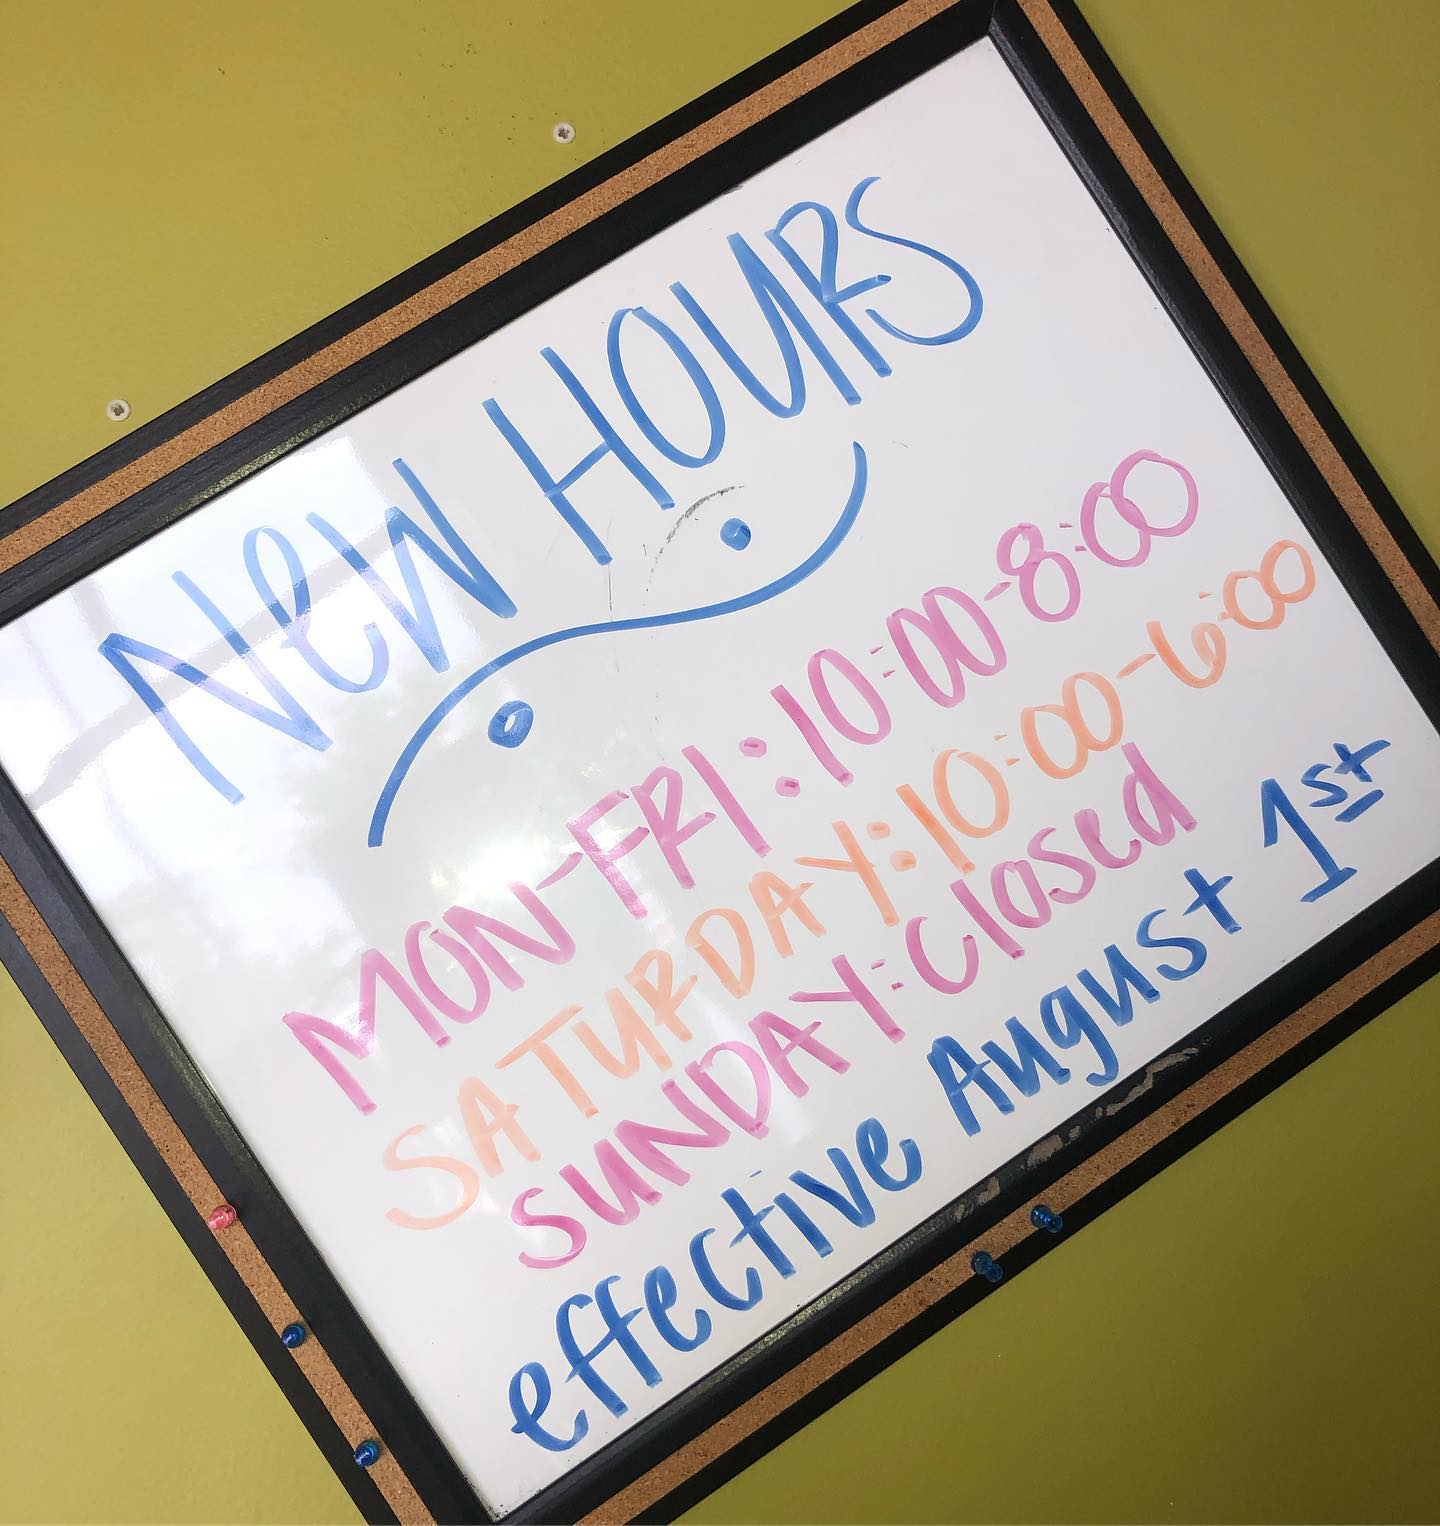 New HOURS
MON-FRI: 10:00-8:00
SATURDAY: 10:00-6:00
SUNDAY: Closed
effective August 1st